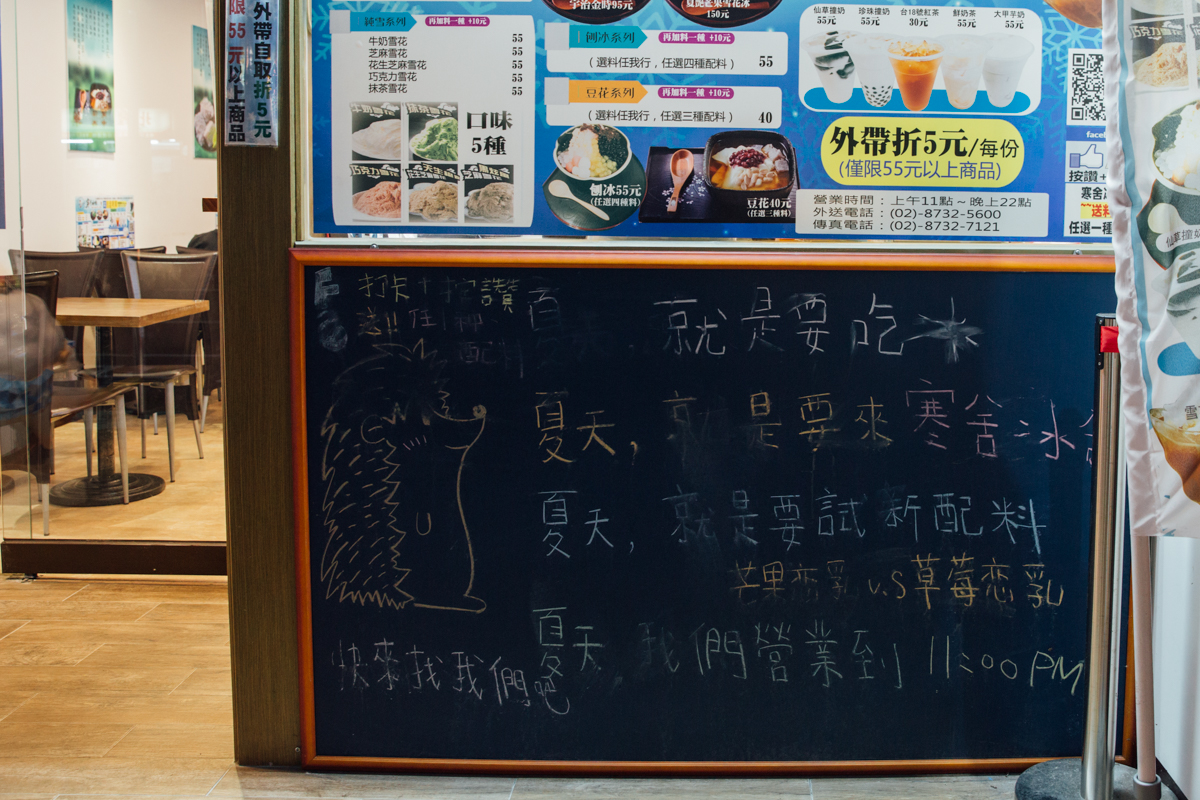 限55元以上商品
外帶自取折5元
純雪系列 再加料一種 +10元
牛奶雪花 55
芝麻雪花 55
花生芝麻雪花 55
巧克力雪花 55
抹茶雪花 55
口味
5種
宇治金時95元
150元
刨冰系列 再加料一種 +10元
(選料任我行，任選四種配料) 55
豆花系列 再加料一種 +10元
(選料任我行，任選三種配料) 40
刨冰55元
(任選四種料)
豆花40元
(任選三種料)
仙草撞奶 珍珠撞奶 台18號紅茶 鮮奶茶 大甲芋奶
55元 55元 30元 55元 55元
外帶折5元/每份
(僅限55元以上商品)
營業時間：上午11點~晚上22點
外送電話：(02)-8732-5600
傳真電話：(02)-8732-7121
按讚+
任選一種
打卡+按讚
送!!任一種
配料
夏天，就是要吃冰
夏天，就是要來寒舍冰
夏天，就是要試新配料
芒果恋乳 v.s 草莓恋乳
夏天 我們營業到 11:00 PM
快來找我們吧
仙草撞奶